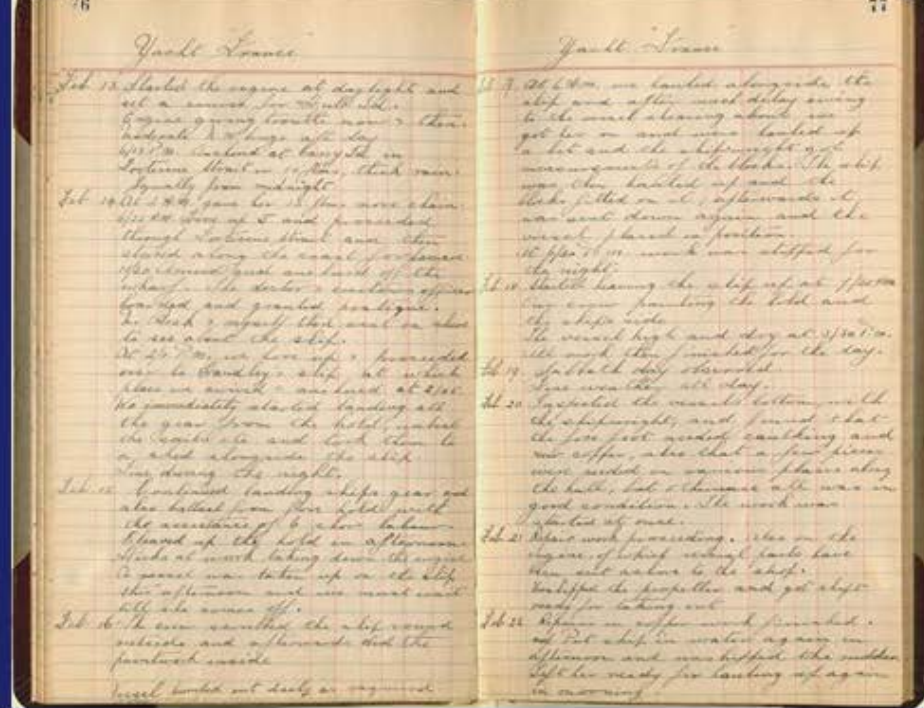 76
Yacht "France"
Feb 13 Started the engine at daylight and
set a course for
Engine giving trouble now & then
moderate
P.M. anchored at
Strait in thick rain
Squally from midnight
Feb 14 At 2 A.M. gave her 15 fms more chain
up and proceeded
through Strait and then
along the coast
and anchored off the
wharf. The doctor & customs officer
boarded and granted pratique.
& myself then went on shore
to see about the slip.
At P.M. we hove up & proceeded
over to slip at which
place we & anchored at
We immediately started landing all
the gear from the hold,
the sails etc and took them to
a shed alongside the slip
Fine during the night.
Feb 15 Continued landing ships gear and
also ballast from fore hold with
the assistance of 6 shore labour
Cleaned up the hold in afternoon
at work taking down the engine
A vessel was taken up on the slip
this afternoon and we must wait
till she comes off.
Feb 16 The crew the ship round
outside and afterwards did the
paintwork inside
Vessel out as required
77
Yacht "France"
At 6 A.M. we hauled alongside the
slip and after much delay owing
to the vessel about, we
got her on and were hauled up
a bit and the shipwright got
measurements of the blocks. The slip
was then hauled up and the
blocks fitted on it, afterwards it
was sent down again and the
vessel placed in position.
At P.M. work was stopped for
the night.
Feb 18 Started heaving the slip up at
crew painting the hold and
the ships side
The vessel high and dry at 3/30 P.M.
All work then finished for the day.
Feb 19 Sabbath day observed
Fine weather all day.
Feb 20 Inspected the vessels bottom with
the shipwright, and found that
the fore foot needed caulking and
new copper, also that a few pieces
were needed in various places along
the hull, but otherwise all was in
good condition. The work was
started at once.
Feb 21 Repair work proceeding. Also on the
engine, of which several parts have
been sent ashore to the shop.
Unshipped the propeller and got shaft
ready for taking out
Feb 22 Repairs in copper work finished.
Put ship in water again in
afternoon and unshipped the rudder
Left her ready for hauling up again
in morning